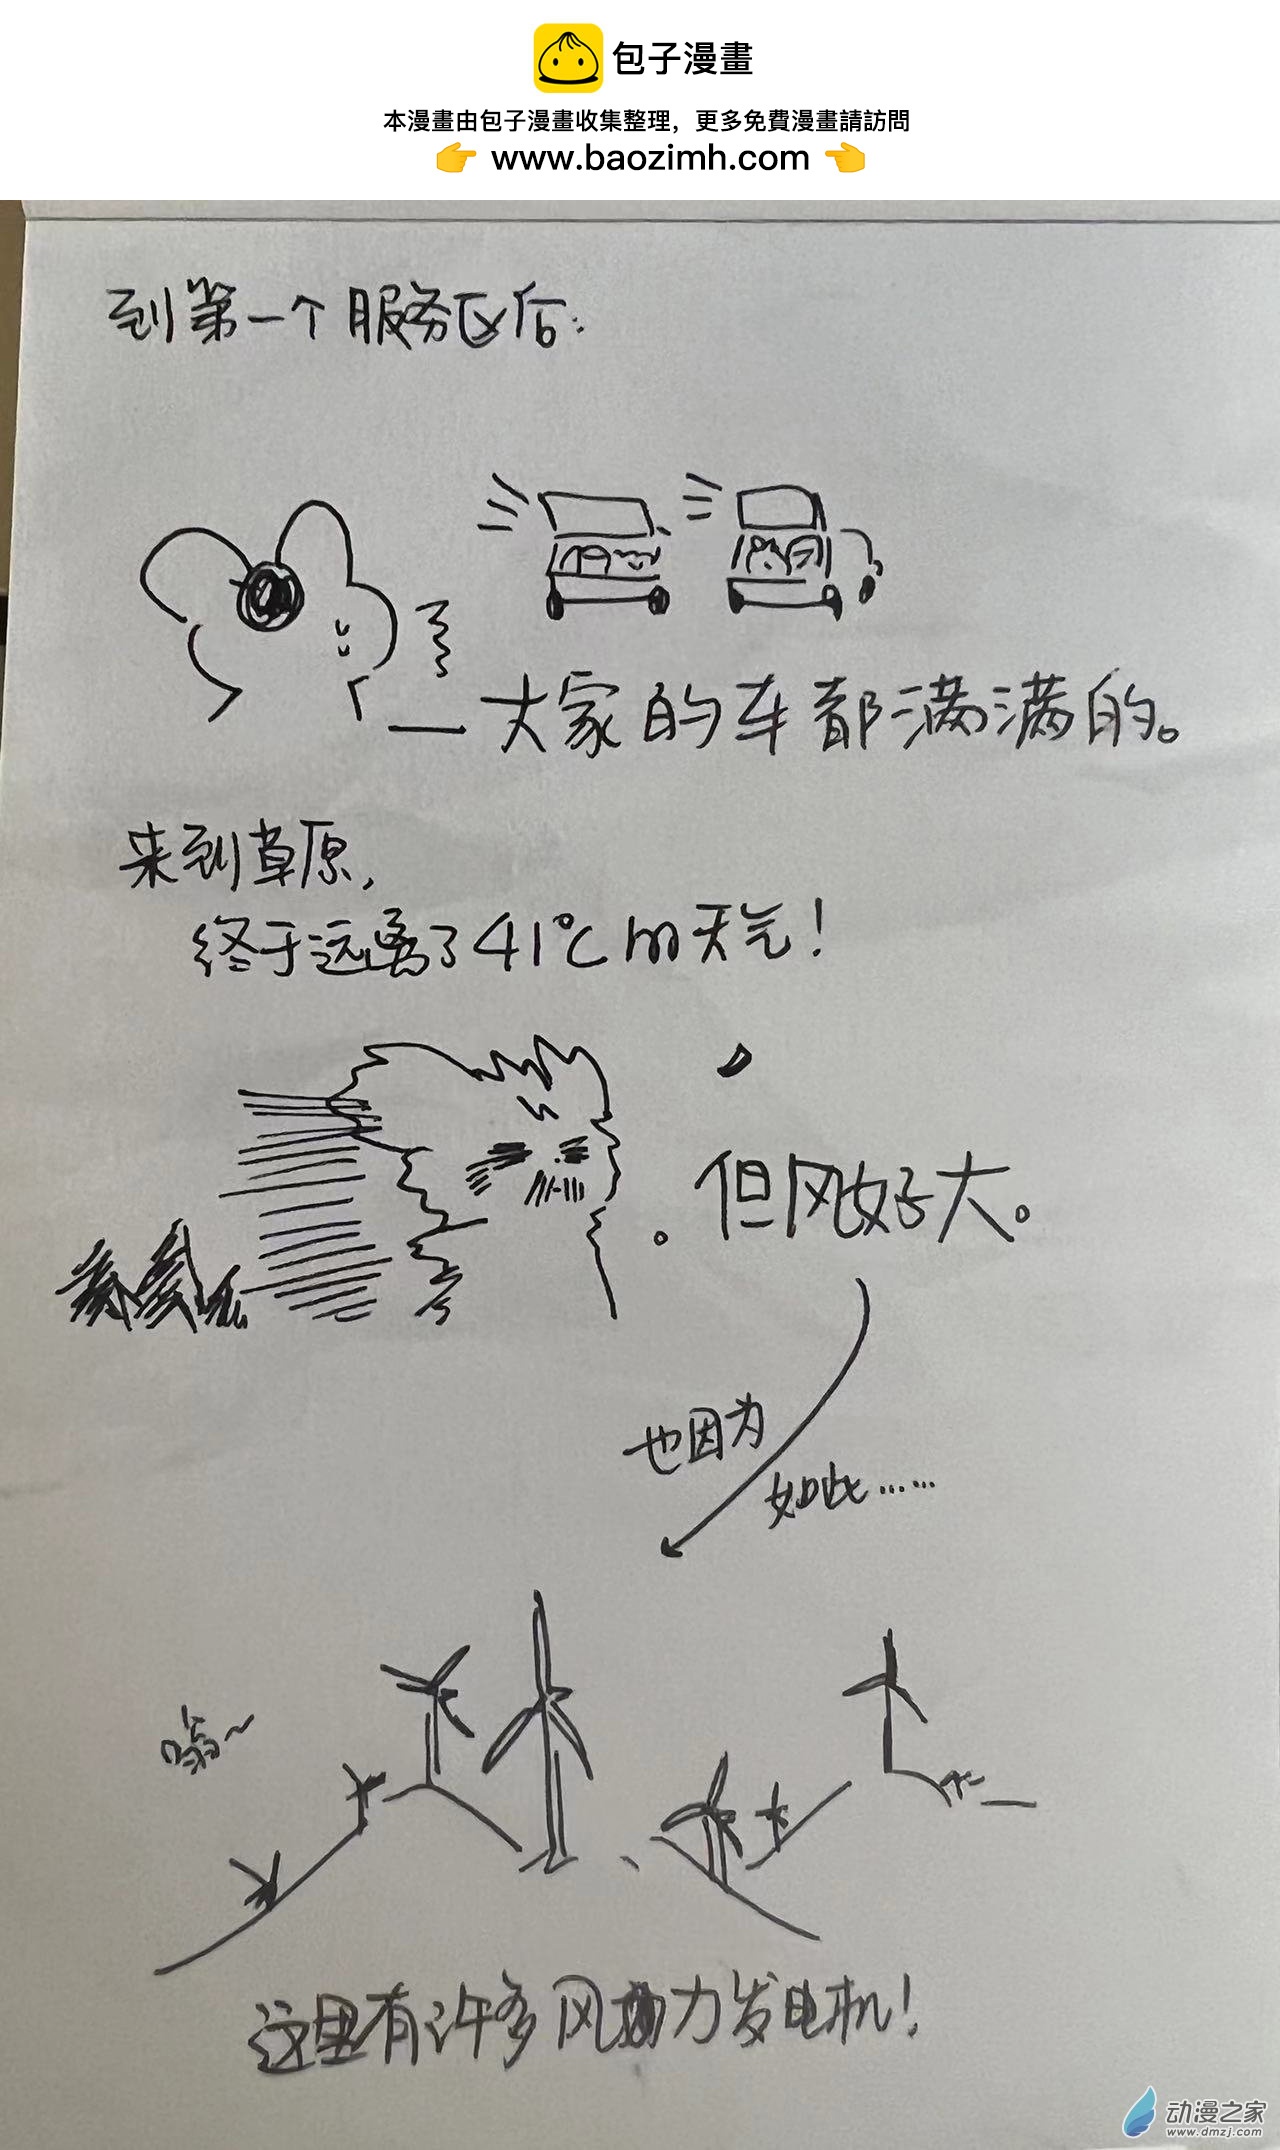 包子漫畫
本漫畫由包子漫畫收集整理，更多免費漫畫請訪問
👉 www.baozimh.com 👈
到第一个服务区后：
大家的车都满满的。
来到草原，
终于远离了41℃的天气！
但风好大。
也因为
如此……
嗡~
这里有许多风力发电机！
动漫之家
www.dmzj.com